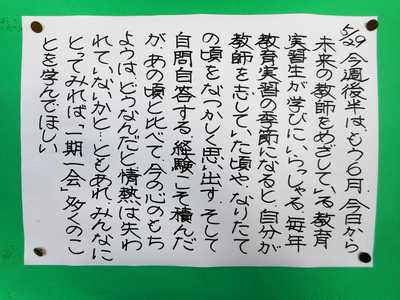 5/29 今週後半は、もう6月。今日から
未来の教師をめざしている教育
実習生が学びにいらっしゃる。毎年
教育実習の季節になると、自分が
教師を志していた頃や、なりたて
の頃をなつかしく思い出す。そして
自問自答する。経験こそ積んだ
が、あの頃と比べて、今の心のもち
ようは、どうなんだと…情熱は失わ
れていないかと…ともあれ、みんなに
とってみれば、「一期一会」多くのこ
とを学んでほしい